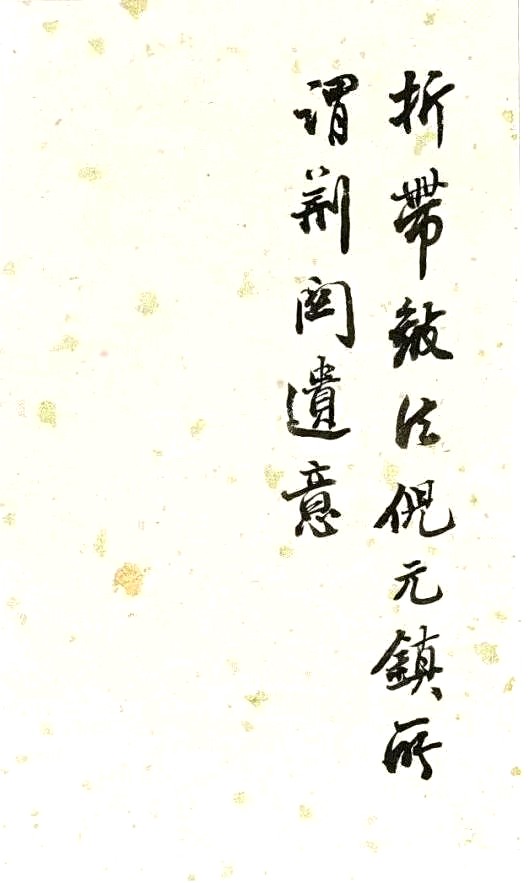 折帶皴法倪元鎮所
謂荊関遺意